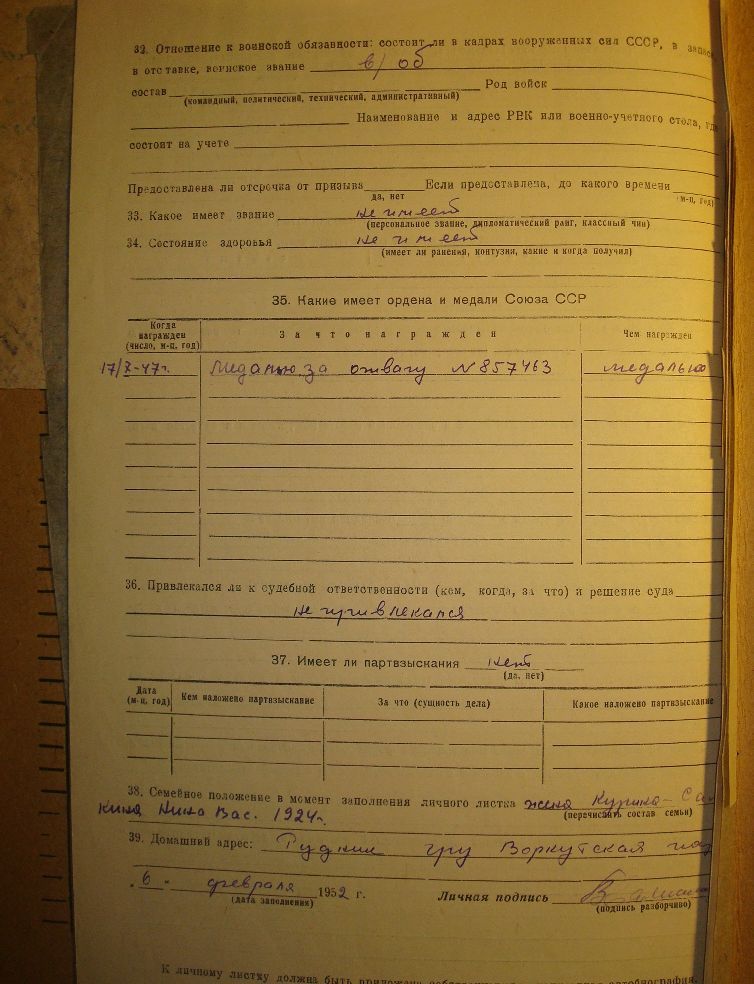 32. Отношение к воинской обязанности: состоит ли в кадрах вооруженных сил СССР, в запасе,
в отставке, воинское звание в/об
состав Род войск
(командный, политический, технический, административный)
Наименование и адрес РВК или военно-учетного стола, где
состоит на учете
Предоставлена ли отсрочка от призыва Если предоставлена, до какого времени
да, нет (м-ц, год)
33. Какое имеет звание не имеет
(персональное звание, дипломатический ранг, классный чин)
34. Состояние здоровья не имеет
(имеет ли ранения, контузии, какие и когда получил)
35. Какие имеет ордена и медали Союза ССР
Когда награжден (число, м-ц, год) За что награжден Чем награжден
17/X-47г. Медалью за отвагу N 857463 медалью
36. Привлекался ли к судебной ответственности (кем, когда, за что) и решение суда
не привлекался
37. Имеет ли партвзыскания нет
(да, нет)
Дата (м-ц, год) Кем наложено партвзыскание За что (сущность дела) Какое наложено партвзыскание
38. Семейное положение в момент заполнения личного листка жена Курина-Сам
(перечислить состав семьи)
кина Нина Вас. 1924г.
39. Домашний адрес: Рудник Воркутская
6 - февраля 1952 г. Личная подпись
(дата заполнения) (подпись разборчиво)
К личному листку должна быть приложена автобиография.